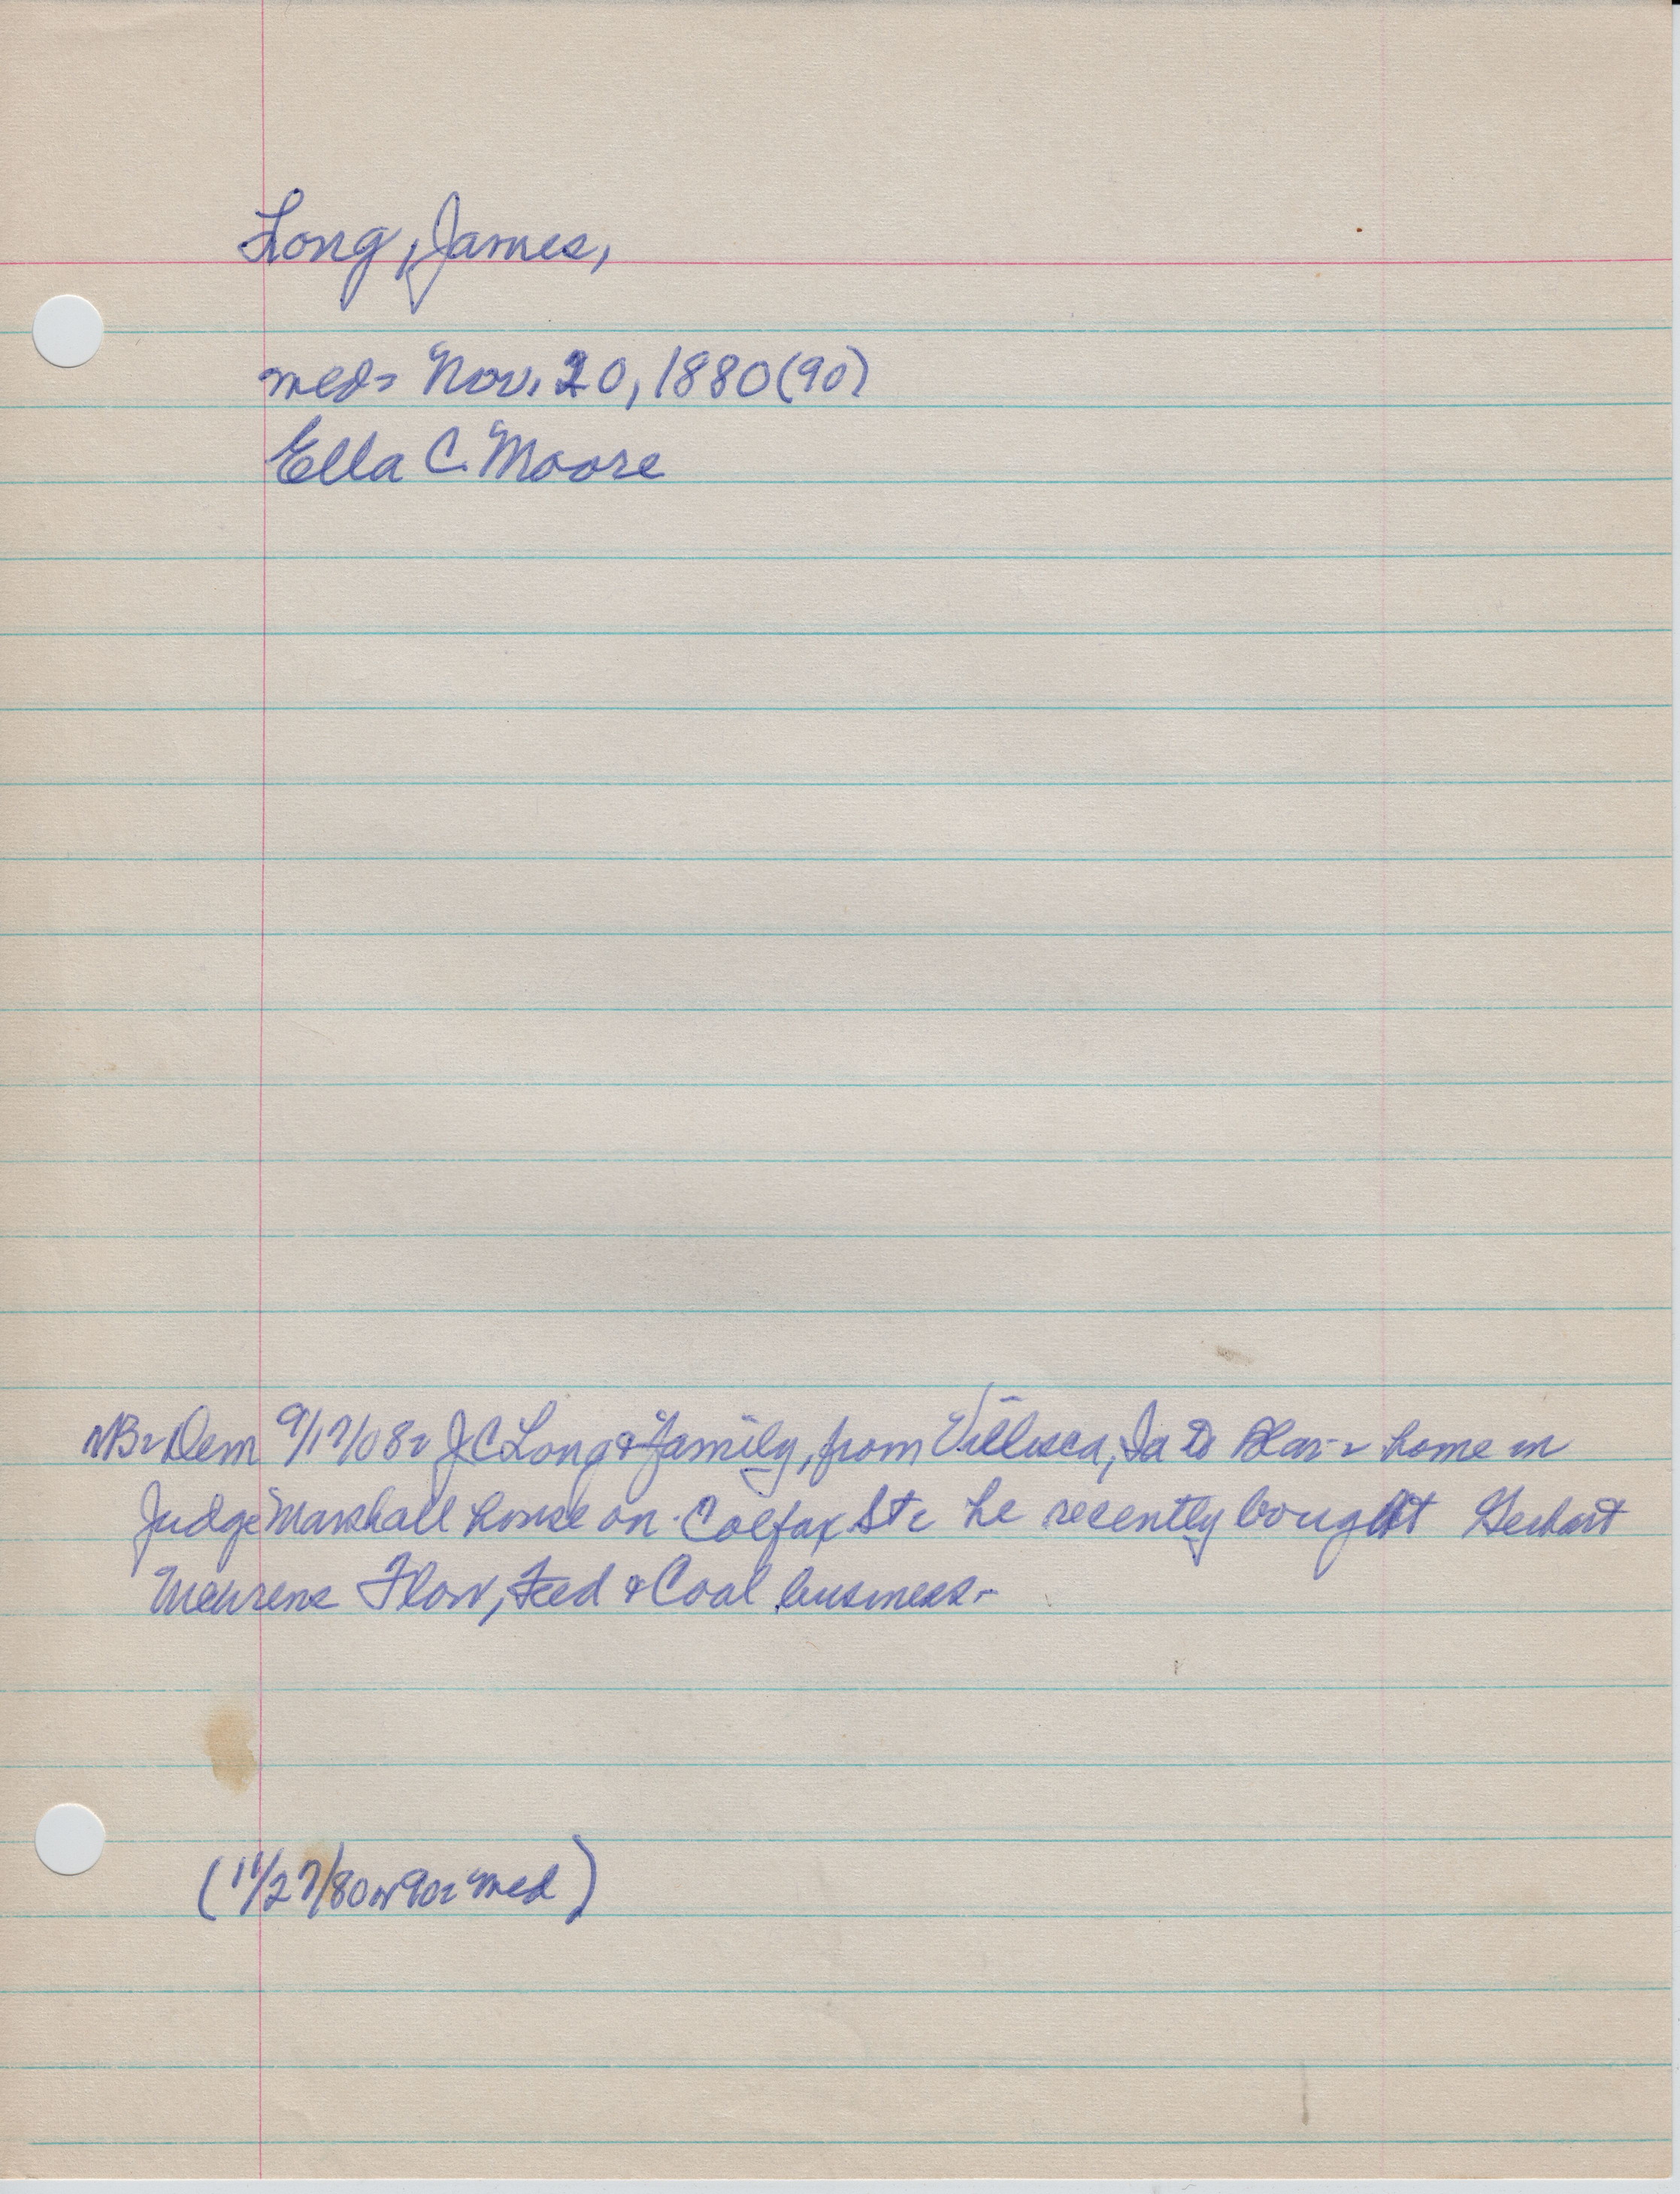 Long, James,
med- Nov. 20, 1880 (90)
Ella C. Moore
Dem 9/17/08- J C Long & family, from Villisca, Ia to Blair- home in
Judge Marshall house on Colfax St- he recently bought Gerhart
Mehrens Flour, Feed & Coal business-
(11/27/80 or 90- med)